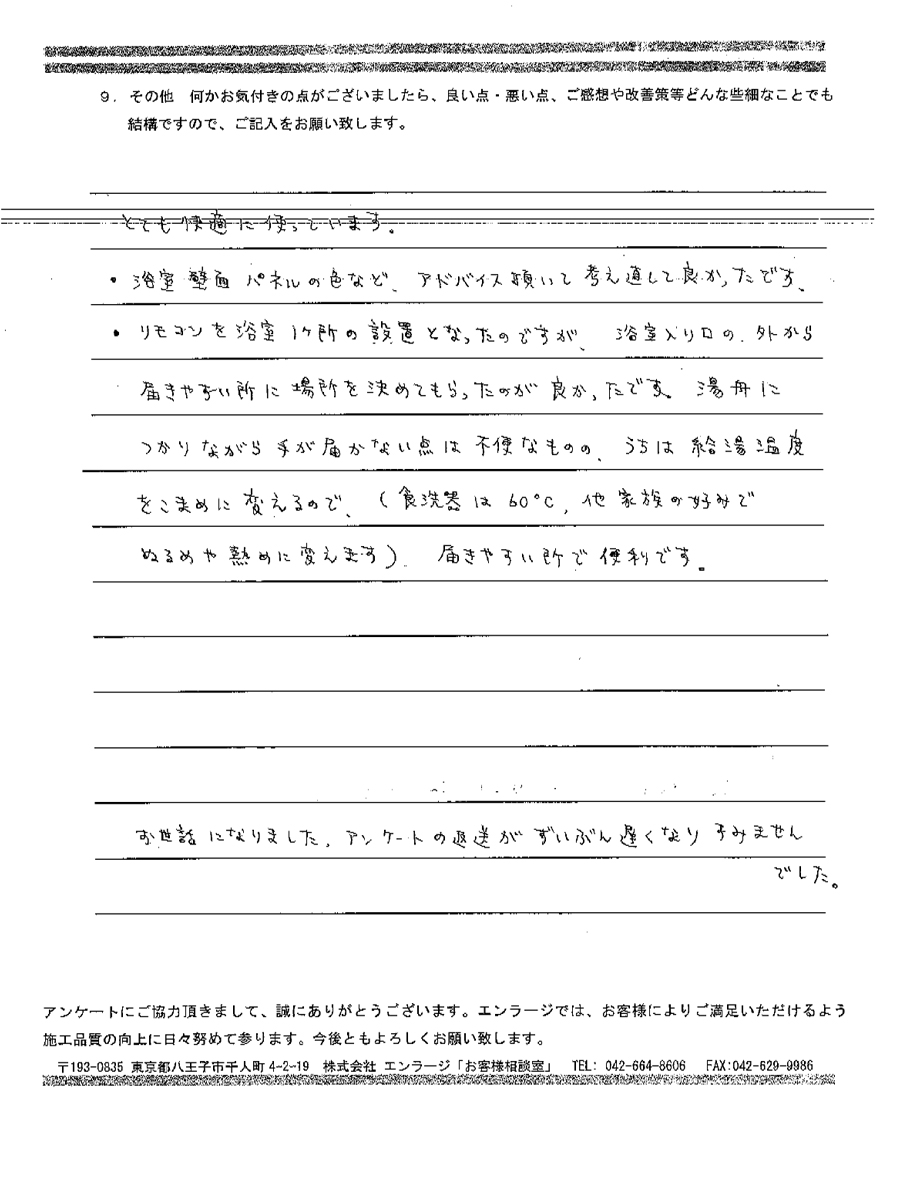 9. その他 何かお気付きの点がございましたら、良い点・悪い点、ご感想や改善策等どんな些細なことでも
結構ですので、ご記入をお願い致します。
とても快適に使っています。
・浴室壁面パネルの色など、アドバイス頂いて考え直して良かったです。
・リモコンを浴室1ケ所の設置となったのですが、浴室入り口の、外から
届きやすい所に場所を決めてもらったのが良かったです。湯舟に
つかりながら手が届かない点は不便なものの、うちは給湯温度
をこまめに変えるので、(食洗器は60℃、他家族の好みで
ぬるめや熱めに変えます)、届きやすい所で便利です。
お世話になりました。アンケートの返送がずいぶん遅くなりすみません
でした。
アンケートにご協力頂きまして、誠にありがとうございます。エンラージでは、お客様によりご満足いただけるよう
施工品質の向上に日々努めて参ります。今後ともよろしくお願い致します。
〒193-0835 東京都八王子市千人町4-2-19 株式会社 エンラージ「お客様相談室」 TEL: 042-664-8606 FAX:042-629-9986